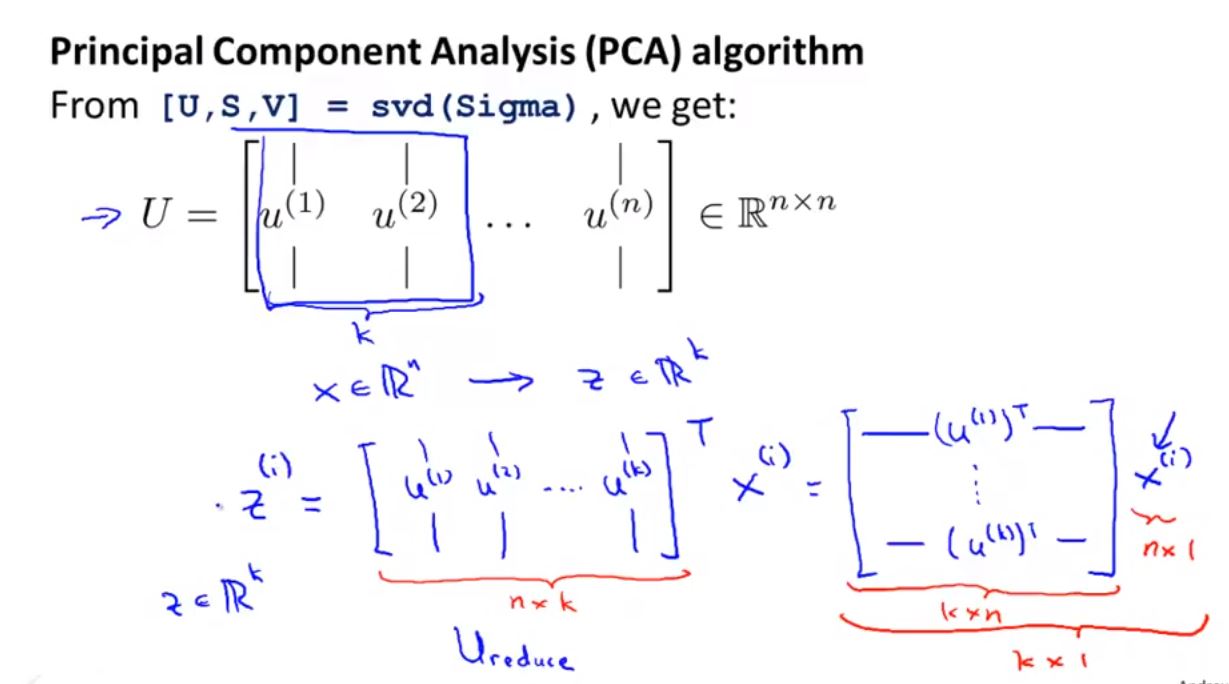 Principal Component Analysis (PCA) algorithm
From [U,S,V] = svd(Sigma) , we get:
→ U = [ u^(1) u^(2) ... u^(n) ] ∈ ℝ^{n×n}
k
x ∈ ℝ^n → z ∈ ℝ^k
z^(i) = [ u^(1) u^(2) .... u^(k) ]^T x^(i) = [ (u^(1))^T ⋮ (u^(k))^T ] x^(i)
z ∈ ℝ^k
n×k
k×n
n×1
k×1
Ureduce